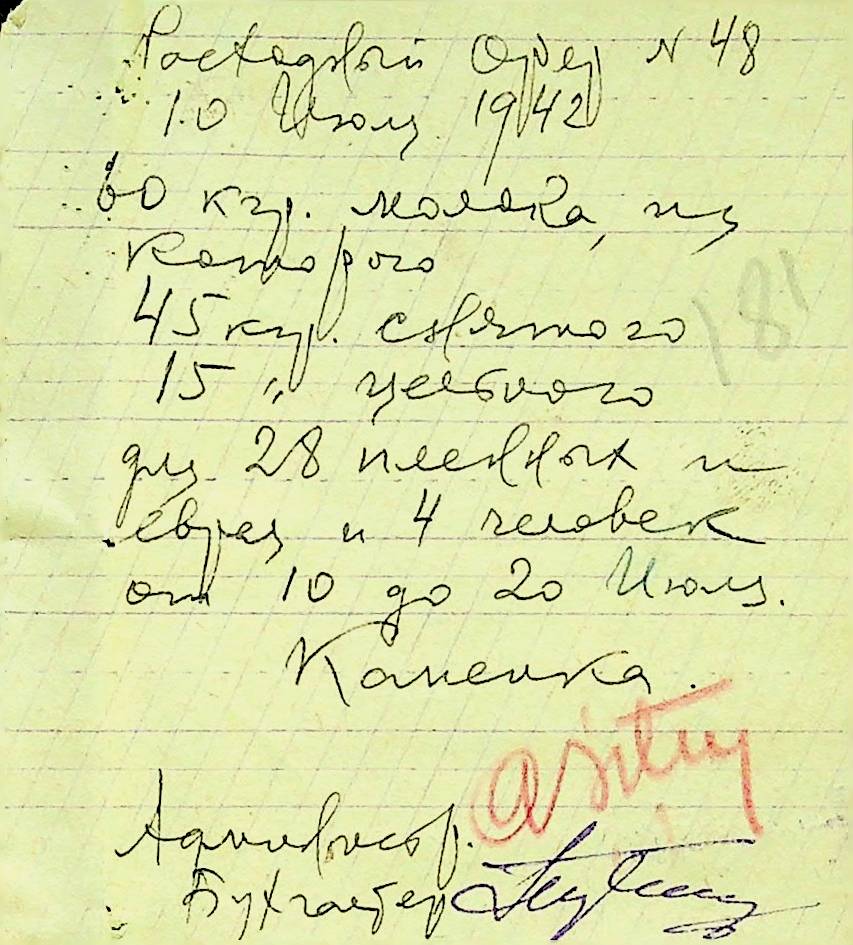 Расходный Ордер N 48
10 Июля 1942
60 кгр. молока, из
которого
45 кгр. снятого
15 " цельного
для 28 пленных и
еврея и 4 человек
от 10 до 20 Июля.
Каменка.
181
Администр.
Бухгалтер